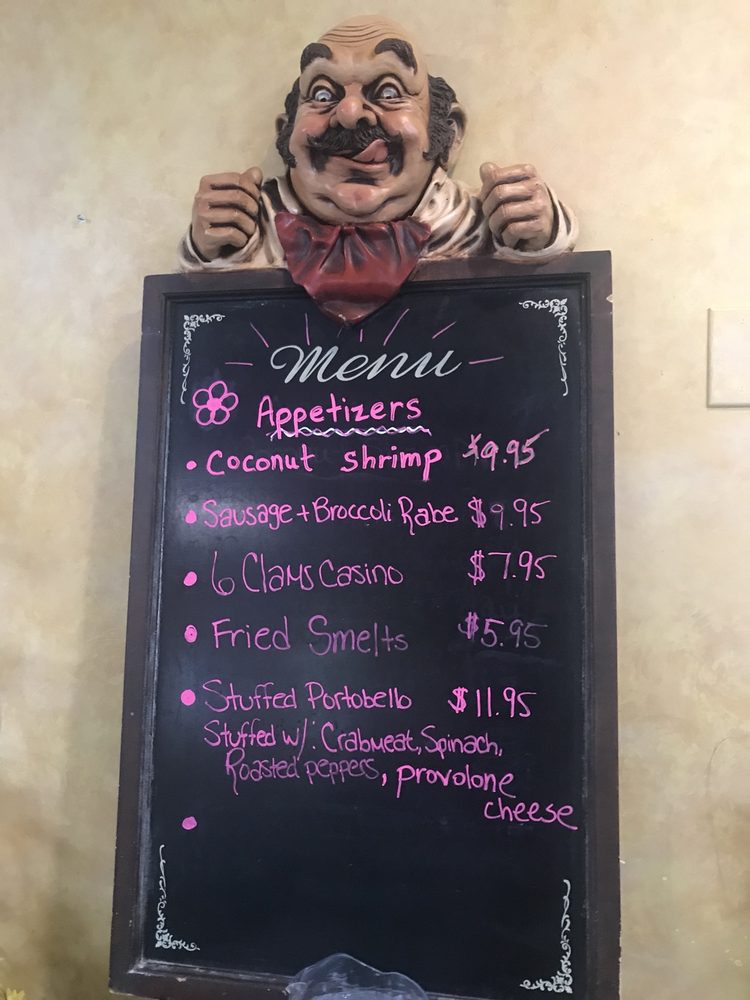 Menu
Appetizers
• Coconut shrimp $9.95
• Sausage + Broccoli Rabe $9.95
• 6 Clams Casino $7.95
• Fried Smelts $5.95
• Stuffed Portobello $11.95
Stuffed w/: Crabmeat, Spinach,
Roasted peppers, provolone
cheese
•